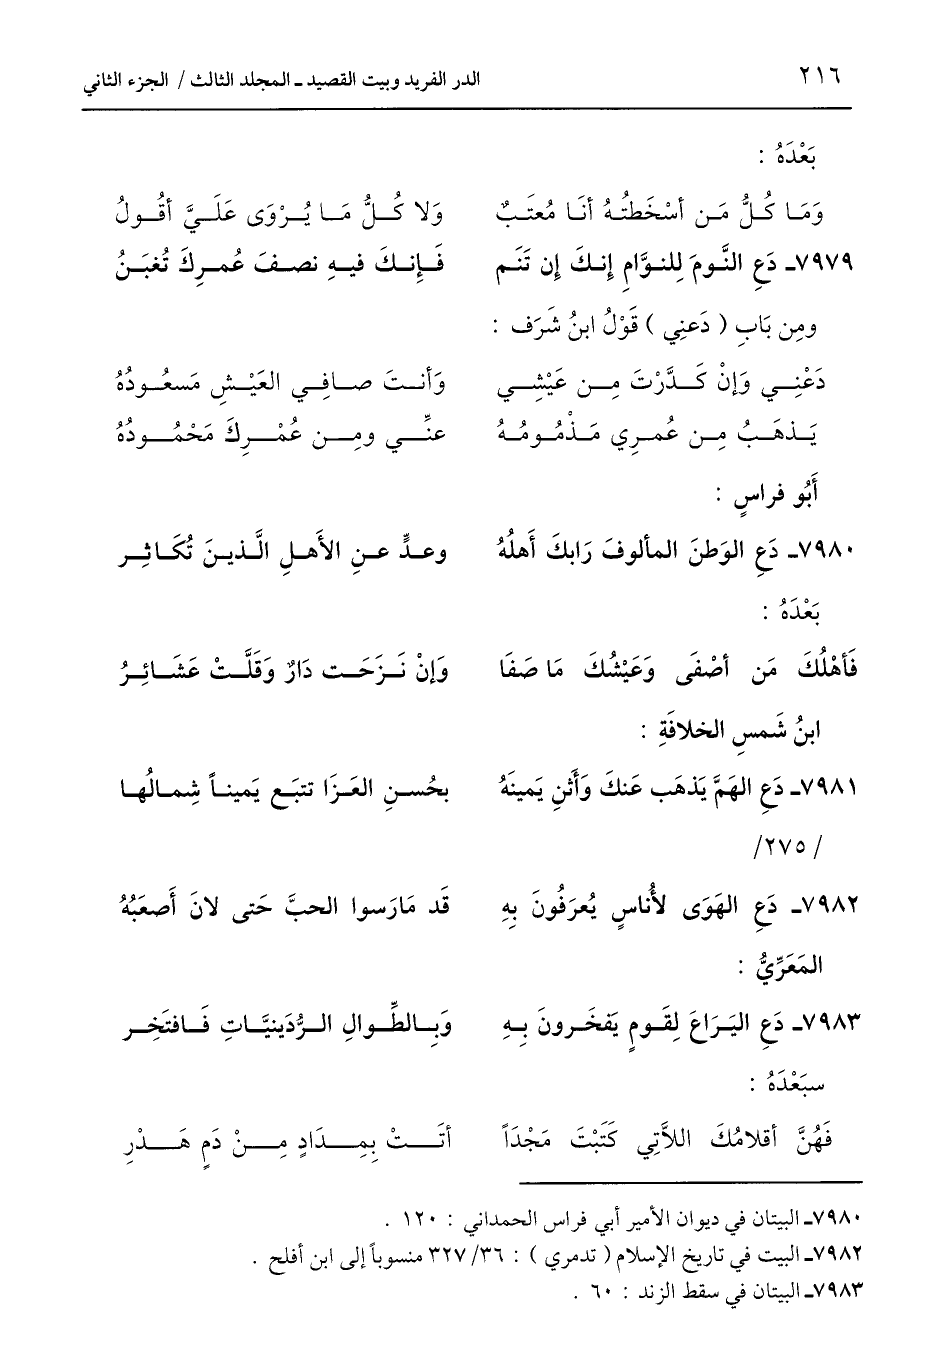 ٢١٦ الدر الفريد وبيت القصيد ـ المجلد الثالث / الجزء الثاني
بَعْدَهُ :
وَمَا كُلُّ مَن أسْخَطتُهُ أنَا مُعتَبٌ وَلا كُلُّ مَا يُرْوَى عَلَيَّ أقُولُ
٧٩٧٩ـ دَعِ النَّومَ لِلنوَّامِ إنكَ إن تَنَم فَإنكَ فيهِ نصفَ عُمرِكَ تُغبَنُ
ومِن بَابِ ( دَعنِي ) قَوْلُ ابنُ شَرَف :
دَعْنِي وَإنْ كَدَّرْتَ مِن عَيْشِي وَأنتَ صافِي العَيْشِ مَسعُودُهُ
يَذهَبُ مِن عُمرِي مَذْمُومُهُ عنِّي ومِن عُمْرِكَ مَحْمُودُهُ
أَبُو فراسٍ :
٧٩٨٠ـ دَعِ الوَطنَ المألوفَ رَابكَ أهلُهُ وعدِّ عنِ الأَهلِ الَّذينَ تُكَاثِر
بَعْدَهُ :
فَأهْلُكَ مَن أصْفَى وَعَيْشُكَ مَا صَفَا وَإنْ نَزَحَت دَارٌ وَقَلَّتْ عَشَائِرُ
ابنُ شَمسِ الخلافَةِ :
٧٩٨١ـ دَعِ الهَمَّ يَذهَب عَنكَ وَأثنِ يَمينَهُ بحُسنِ العَزَا تتبَع يَميناً شِمالُها
/ ٢٧٥/
٧٩٨٢ـ دَعِ الهَوَى لأُناسٍ يُعرَفُونَ بِهِ قَد مَارَسوا الحبَّ حَتى لانَ أَصعَبُهُ
المَعَرِّيُّ :
٧٩٨٣ـ دَعِ اليَرَاعَ لِقَومٍ يَفخَرونَ بِهِ وَبِالطِّوالِ الرُّدَينيَّاتِ فَافتَخِر
سبَعْدَهُ :
فَهُنَّ أقلامُكَ اللاَّتِي كَتَبْتَ مَجْدَاً أتَتْ بِمِدَادٍ مِنْ دَمٍ هَدْرِ
٧٩٨٠ـ البيتان في ديوان الأمير أبي فراس الحمداني : ١٢٠ .
٧٩٨٢ـ البيت في تاريخ الإسلام ( تدمري ) : ٣٢٧/٣٦ منسوباً إلى ابن أفلح .
٧٩٨٣ـ البيتان في سقط الزند : ٦٠ .